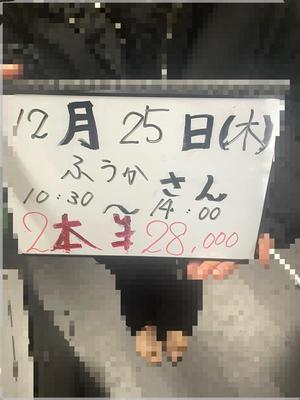 12月25日(木)
ふうかさん
10:30～14:00
2本¥28,000